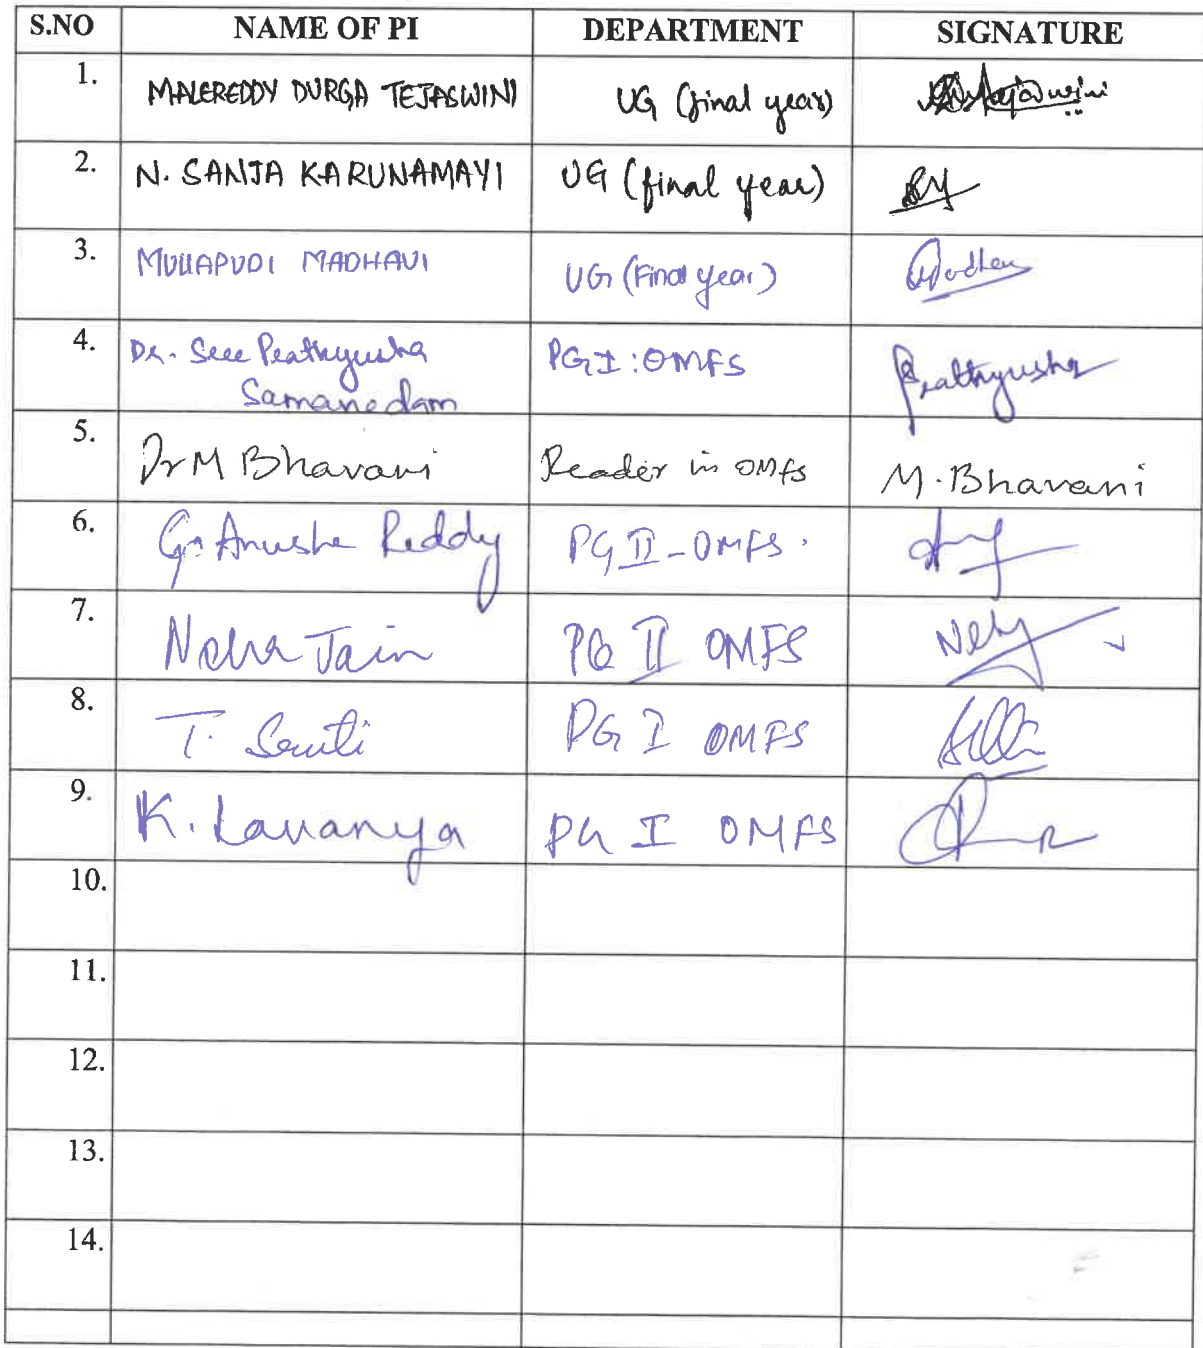 S.NO NAME OF PI DEPARTMENT SIGNATURE
1. MALEREDDY DURGA TEJASWINI UG (final year)
2. N. SANJA KARUNAMAYI UG (final year)
3. MULLAPUDI MADHAVI UG (Final year)
4. Dr. Sree Prathyusha PG I : OMFS Prathyusha
Samanedam
5. Dr M Bhavani Reader in OMFS M. Bhavani
6. G. Anusha Reddy PG II - OMFS.
7. Neha Jain PG II OMFS Neha
8. T. Sruti PG I OMFS
9. K. Lavanya PG I OMFS
10.
11.
12.
13.
14.